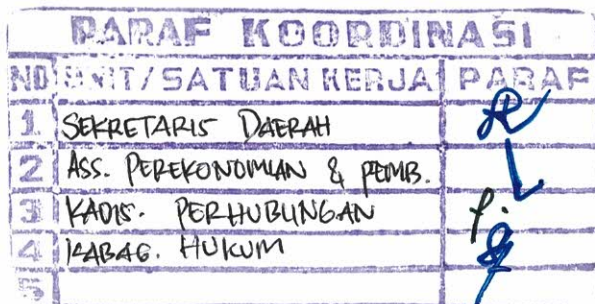 PARAF KOORDINASI
NO UNIT/SATUAN KERJA PARAF
1 SEKRETARIS DAERAH
2 ASS. PEREKONOMIAN & PEMB.
3 KADIS. PERHUBUNGAN
4 KABAG. HUKUM
5